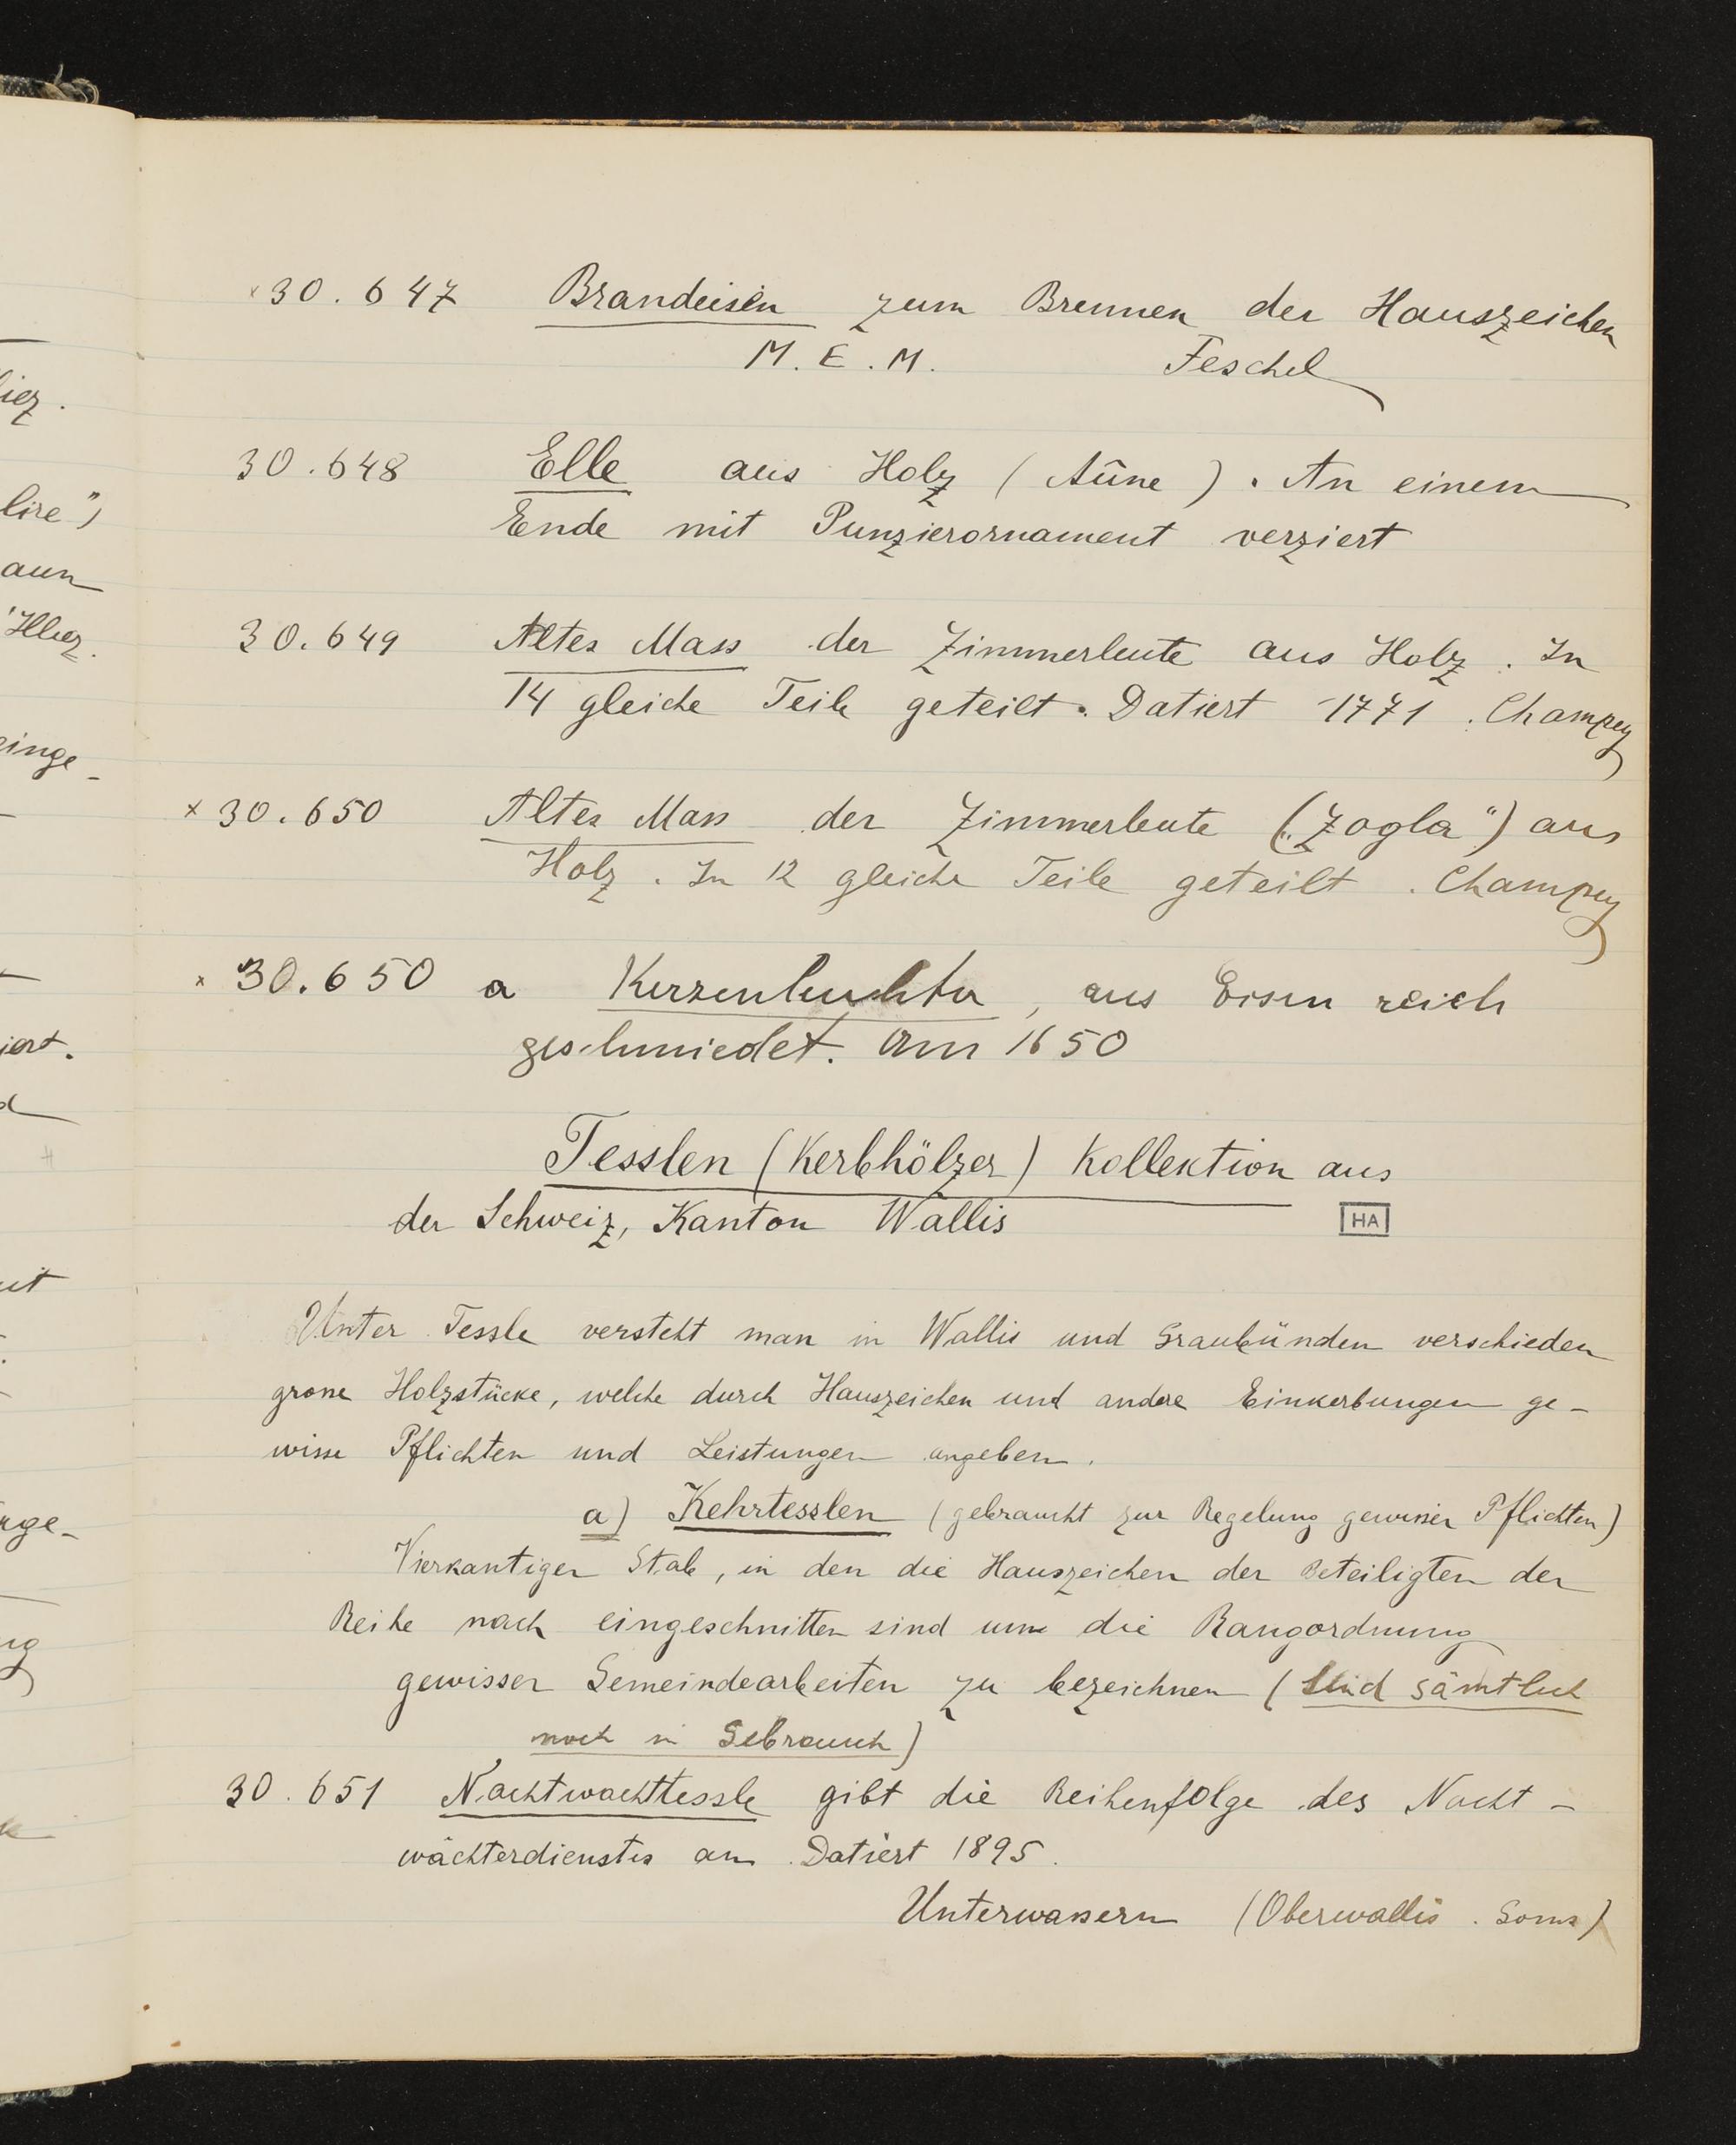 lier.
lire")
aun
'Illiez.
einge-
iert.
d
nge-
ng
× 30.647 Brandeisen zum Brennen der Hauszeichen
M. E. M. Feschel
30.648 Elle aus Holz (Aûne). An einem
Ende mit Punzierornament verziert
30.649 Altes Mass der Zimmerleute aus Holz. In
14 gleiche Teile geteilt. Datiert 1771. Champey
× 30.650 Altes Mass der Zimmerleute („Zogla") aus
Holz. In 12 gleiche Teile geteilt. Champey
× 30.650 a Kerzenleuchter, aus Eisen reich
geschmiedet. Um 1650
Tesslen (Kerbhölzer) Kollektion aus
der Schweiz, Kanton Wallis
HA
Unter Tessle versteht man in Wallis und Graubünden verschieden
grosse Holzstücke, welche durch Hauszeichen und andere Einkerbungen ge-
wisse Pflichten und Leistungen angeben.
a) Kehrtesslen (gebraucht zur Regelung gewisser Pflichten)
Vierkantiger Stab, in den die Hauszeichen der Beteiligten der
Reihe nach eingeschnitten sind um die Rangordnung
gewisser Gemeindearbeiten zu bezeichnen (Sind sämtlich
noch in Gebrauch)
30.651 Nachtwachttessle gibt die Reihenfolge des Nacht-
wächterdienstes an. Datiert 1895.
Unterwassern (Oberwallis. Goms)